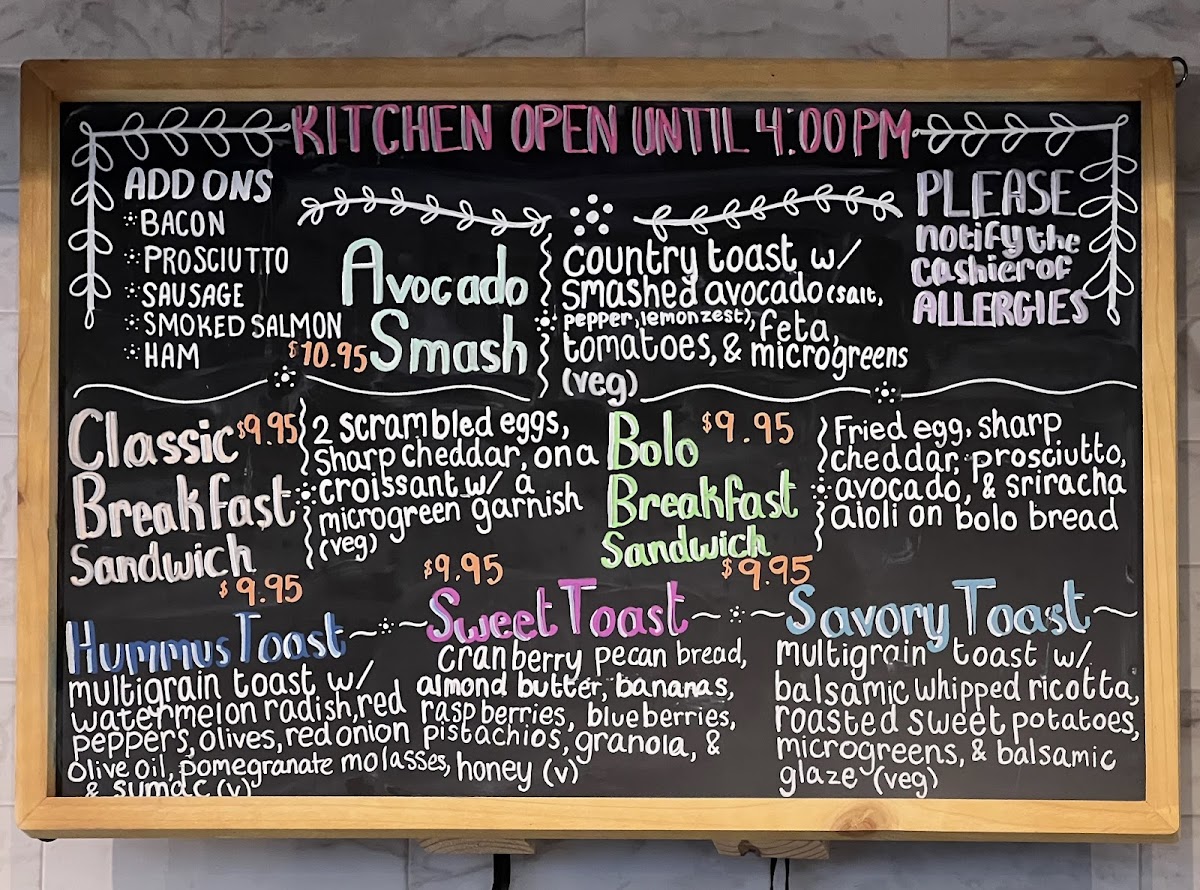 KITCHEN OPEN UNTIL 4:00PM
ADD ONS
BACON
PROSCIUTTO
SAUSAGE
SMOKED SALMON
HAM
$10.95
Avocado
Smash
country toast w/
smashed avocado (salt,
pepper, lemon zest), feta,
tomatoes, & microgreens
(veg)
PLEASE
notify the
cashier of
ALLERGIES
Classic $9.95
Breakfast
Sandwich
2 scrambled eggs,
sharp cheddar, on a
croissant w/ a
microgreen garnish
(veg)
Bolo $9.95
Breakfast
Sandwich
Fried egg, sharp
cheddar, prosciutto,
avocado, & sriracha
aioli on bolo bread
$9.95
Hummus Toast
multigrain toast w/
watermelon radish, red
peppers, olives, red onion
olive oil, pomegranate molasses,
& sumac (v)
$9.95
Sweet Toast
cranberry pecan bread,
almond butter, bananas,
raspberries, blueberries,
pistachios, granola, &
honey (v)
$9.95
Savory Toast
multigrain toast w/
balsamic whipped ricotta,
roasted sweet potatoes,
microgreens, & balsamic
glaze (veg)